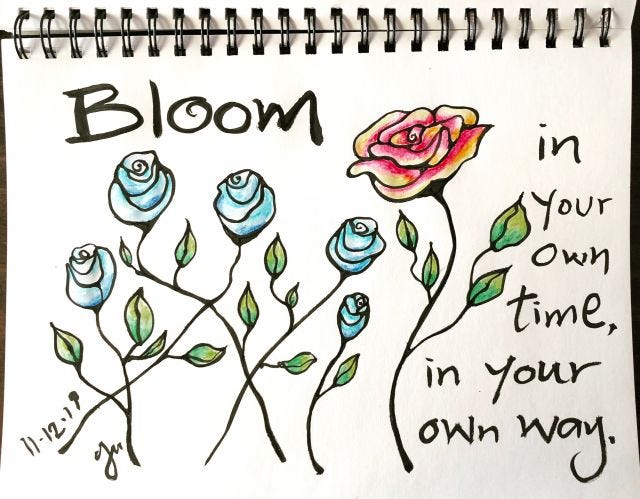 Bloom
in
your
own
time,
in your
own way.
11-12-19